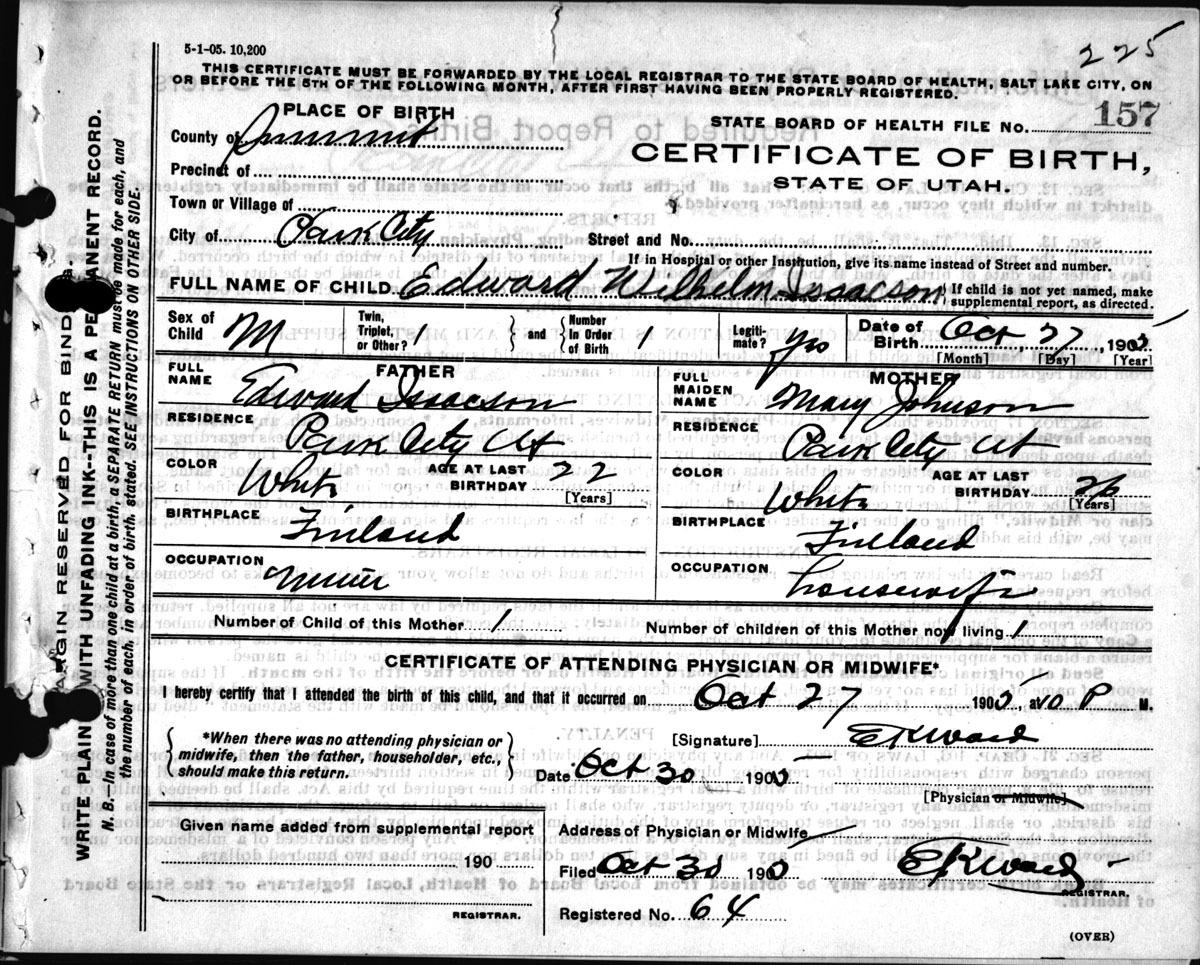 5-1-05. 10,200
225
THIS CERTIFICATE MUST BE FORWARDED BY THE LOCAL REGISTRAR TO THE STATE BOARD OF HEALTH, SALT LAKE CITY, ON
OR BEFORE THE 5TH OF THE FOLLOWING MONTH, AFTER FIRST HAVING BEEN PROPERLY REGISTERED.
PLACE OF BIRTH
County of Summit
Precinct of
Town or Village of
City of Park City
STATE BOARD OF HEALTH FILE No. 157
CERTIFICATE OF BIRTH,
STATE OF UTAH.
Street and No.
If in Hospital or other Institution, give its name instead of Street and number.
FULL NAME OF CHILD Edward Wilhelm Isaacson
If child is not yet named, make
supplemental report, as directed.
Sex of Child M
Twin, Triplet, or Other? 1
and
Number In Order of Birth 1
Legitimate? Yes
Date of Birth Oct 27 1905
[Month] [Day] [Year]
FATHER
FULL NAME Edward Isaacson
RESIDENCE Park City Ut
COLOR White
AGE AT LAST BIRTHDAY 22
[Years]
BIRTHPLACE Finland
OCCUPATION Miner
MOTHER
FULL MAIDEN NAME Mary Johnson
RESIDENCE Park City Ut
COLOR White
AGE AT LAST BIRTHDAY 26
[Years]
BIRTHPLACE Finland
OCCUPATION housewife
Number of Child of this Mother 1
Number of children of this Mother now living 1
CERTIFICATE OF ATTENDING PHYSICIAN OR MIDWIFE*
I hereby certify that I attended the birth of this child, and that it occurred on Oct 27 1905, at 10 P M.
*When there was no attending physician or
midwife, then the father, householder, etc.,
should make this return.
[Signature] EKWard
Date Oct 30 1905
[Physician or Midwife]
Given name added from supplemental report
190
REGISTRAR.
Address of Physician or Midwife
Filed Oct 30 1905 EKWard
REGISTRAR.
Registered No. 64
(OVER)
MARGIN RESERVED FOR BINDING
WRITE PLAINLY WITH UNFADING INK--THIS IS A PERMANENT RECORD.
N. B.—In case of more than one child at a birth, a SEPARATE RETURN must be made for each, and
the number of each, in order of birth, stated. (SEE INSTRUCTIONS ON OTHER SIDE.